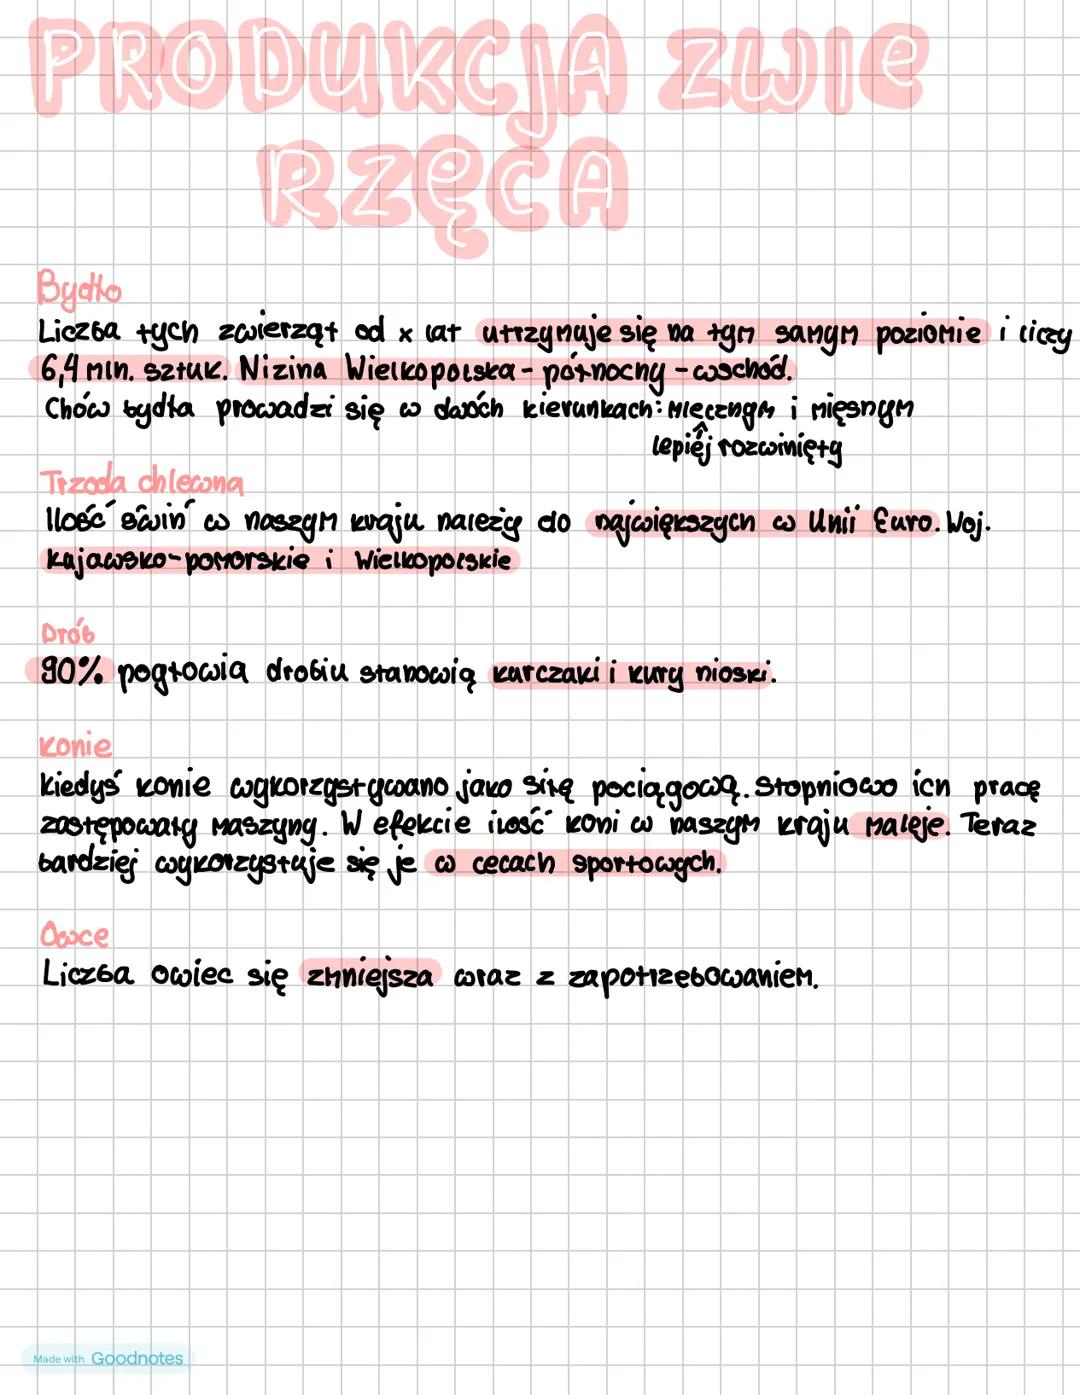 PRODUKCJA ZWIE
RZĘCA
Bydło
Liczba tych zwierząt od x lat utrzymuje się na tym samym poziomie i liczy
6,4 mln. sztuk. Nizina Wielkopolska - północny - wschód.
Chów bydła prowadzi się w dwóch kierunkach: mlecznym i mięsnym
lepiej rozwinięty
Trzoda chlewna
Ilość świń w naszym kraju należy do największych w Unii Euro. Woj.
kujawsko-pomorskie i Wielkopolskie
Drób
90% pogłowia drobiu stanowią kurczaki i kury nioski.
Konie
Kiedyś konie wykorzystywano jako siłę pociągową. Stopniowo ich pracę
zastępowały maszyny. W efekcie ilość koni w naszym kraju maleje. Teraz
bardziej wykorzystuje się je w celach sportowych.
Owce
Liczba owiec się zmniejsza wraz z zapotrzebowaniem.
Made with Goodnotes